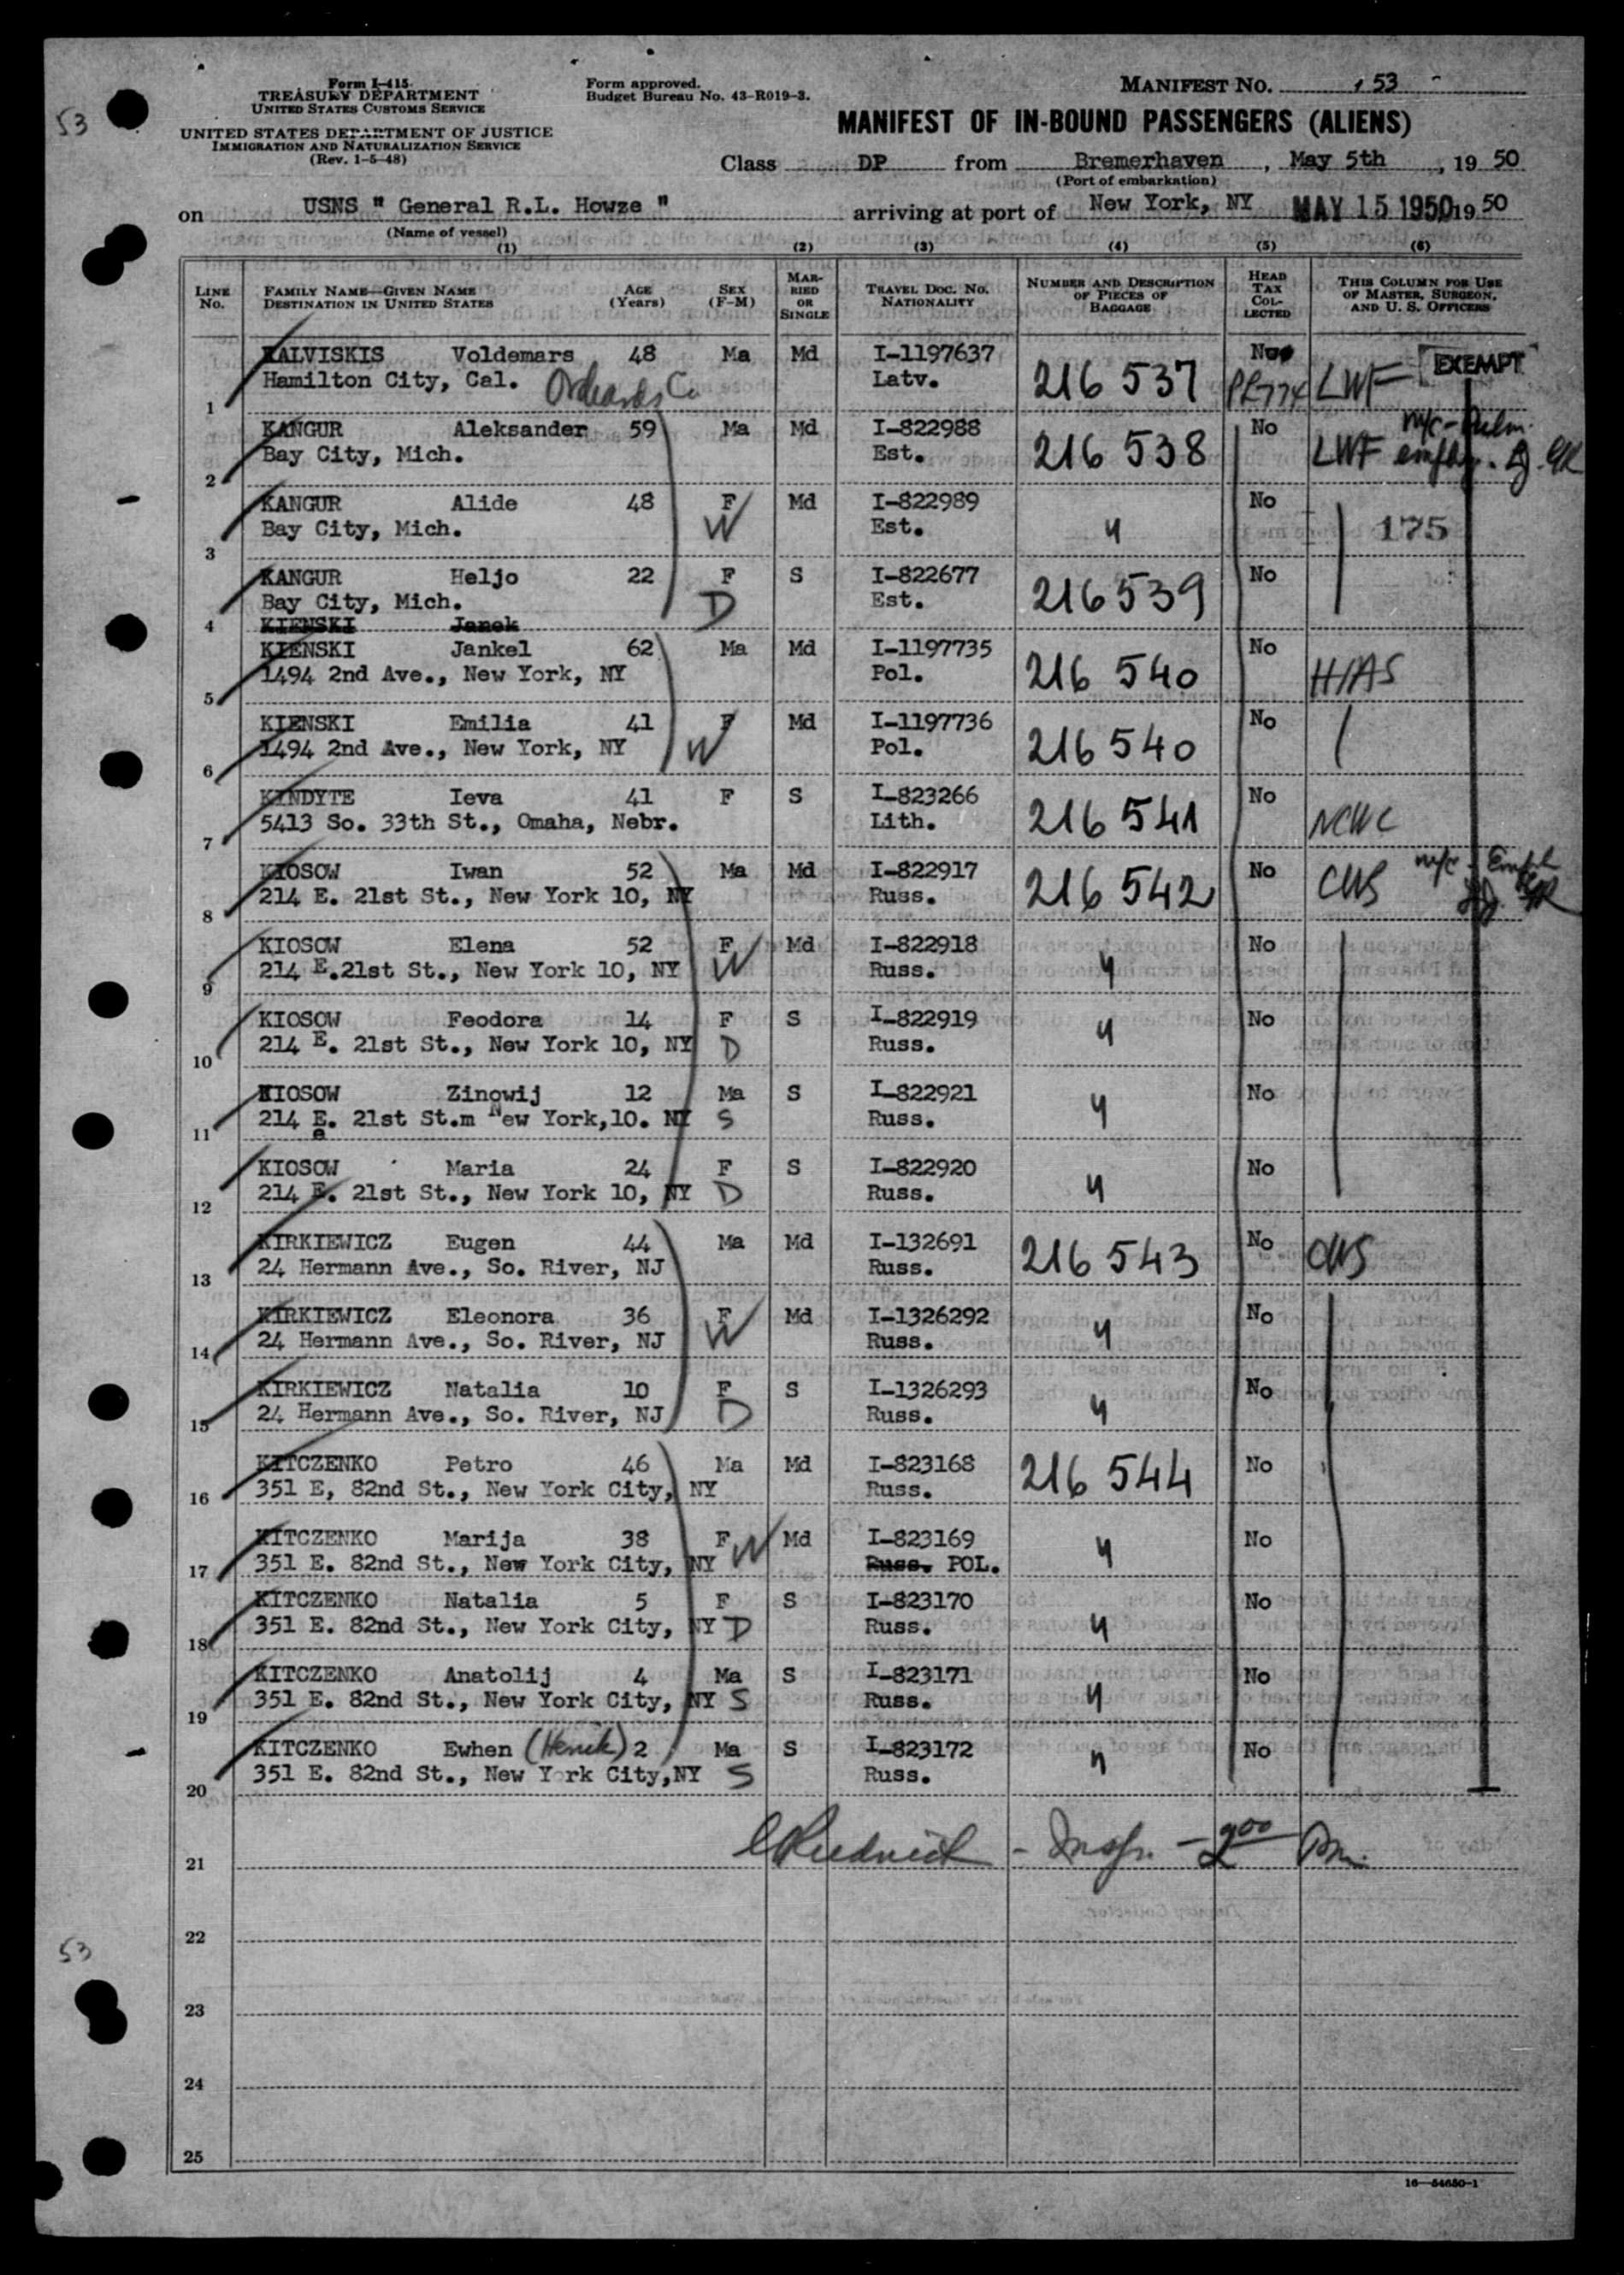 53
Form I-415
TREASURY DEPARTMENT
UNITED STATES CUSTOMS SERVICE
UNITED STATES DEPARTMENT OF JUSTICE
IMMIGRATION AND NATURALIZATION SERVICE
(Rev. 1-5-48)
Form approved.
Budget Bureau No. 43-R019-3.
MANIFEST NO. 53
MANIFEST OF IN-BOUND PASSENGERS (ALIENS)
Class DP from Bremerhaven, May 5th, 19 50
(Port of embarkation)
on USNS " General R.L. Howze " arriving at port of New York, NY MAY 15 1950 19 50
(Name of vessel)
(1) (2) (3) (4) (5) (6)
LINE No. FAMILY NAME—GIVEN NAME DESTINATION IN UNITED STATES AGE (Years) SEX (F-M) MARRIED OR SINGLE TRAVEL DOC. NO. NATIONALITY NUMBER AND DESCRIPTION OF PIECES OF BAGGAGE HEAD TAX COLLECTED THIS COLUMN FOR USE OF MASTER, SURGEON, AND U. S. OFFICERS
KALVISKIS Voldemars 48 Ma Md I-1197637 216 537 No LWF EXEMPT
1 Hamilton City, Cal. Orchards Co Latv.
KANGUR Aleksander 59 Ma Md I-822988 216 538 No LWF
2 Bay City, Mich. Est.
KANGUR Alide 48 F W Md I-822989 " No 175
3 Bay City, Mich. Est.
KANGUR Heljo 22 F D S I-822677 216539 No
4 Bay City, Mich. Est.
KIENSKI Janek
KIENSKI Jankel 62 Ma Md I-1197735 216 540 No HIAS
5 1494 2nd Ave., New York, NY Pol.
KIENSKI Emilia 41 F W Md I-1197736 216 540 No
6 1494 2nd Ave., New York, NY Pol.
KINDYTE Ieva 41 F S I-823266 216 541 No NCWC
7 5413 So. 33th St., Omaha, Nebr. Lith.
KIOSOW Iwan 52 Ma Md I-822917 216 542 No CWS
8 214 E. 21st St., New York 10, NY Russ.
KIOSOW Elena 52 F W Md I-822918 " No
9 214 E.21st St., New York 10, NY Russ.
KIOSOW Feodora 14 F D S I-822919 " No
10 214 E. 21st St., New York 10, NY Russ.
KIOSOW Zinowij 12 Ma S S I-822921 " No
11 214 E. 21st St.m New York,10. NY Russ.
KIOSOW Maria 24 F D S I-822920 " No
12 214 E. 21st St., New York 10, NY Russ.
KIRKIEWICZ Eugen 44 Ma Md I-132691 216 543 No CWS
13 24 Hermann Ave., So. River, NJ Russ.
KIRKIEWICZ Eleonora 36 F W Md I-1326292 " No
14 24 Hermann Ave., So. River, NJ Russ.
KIRKIEWICZ Natalia 10 F D S I-1326293 " No
15 24 Hermann Ave., So. River, NJ Russ.
KITCZENKO Petro 46 Ma Md I-823168 216 544 No
16 351 E, 82nd St., New York City, NY Russ.
KITCZENKO Marija 38 F W Md I-823169 " No
17 351 E. 82nd St., New York City, NY Russ. POL.
KITCZENKO Natalia 5 F D S I-823170 " No
18 351 E. 82nd St., New York City, NY Russ.
KITCZENKO Anatolij 4 Ma S S I-823171 " No
19 351 E. 82nd St., New York City, NY Russ.
KITCZENKO Ewhen (Henik) 2 Ma S S I-823172 " No
20 351 E. 82nd St., New York City,NY Russ.
21 - Insp. - 2 00 Pm.
22
53
23
24
25
16—54650-1